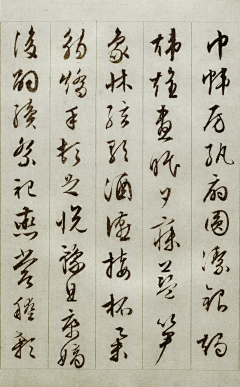 巾帷房紈扇圓潔銀燭
煒煌晝眠夕寐藍筍
象床弦歌酒讌接杯舉
觴矯手頓足悅豫且康嫡
後嗣續祭祀蒸嘗稽顙